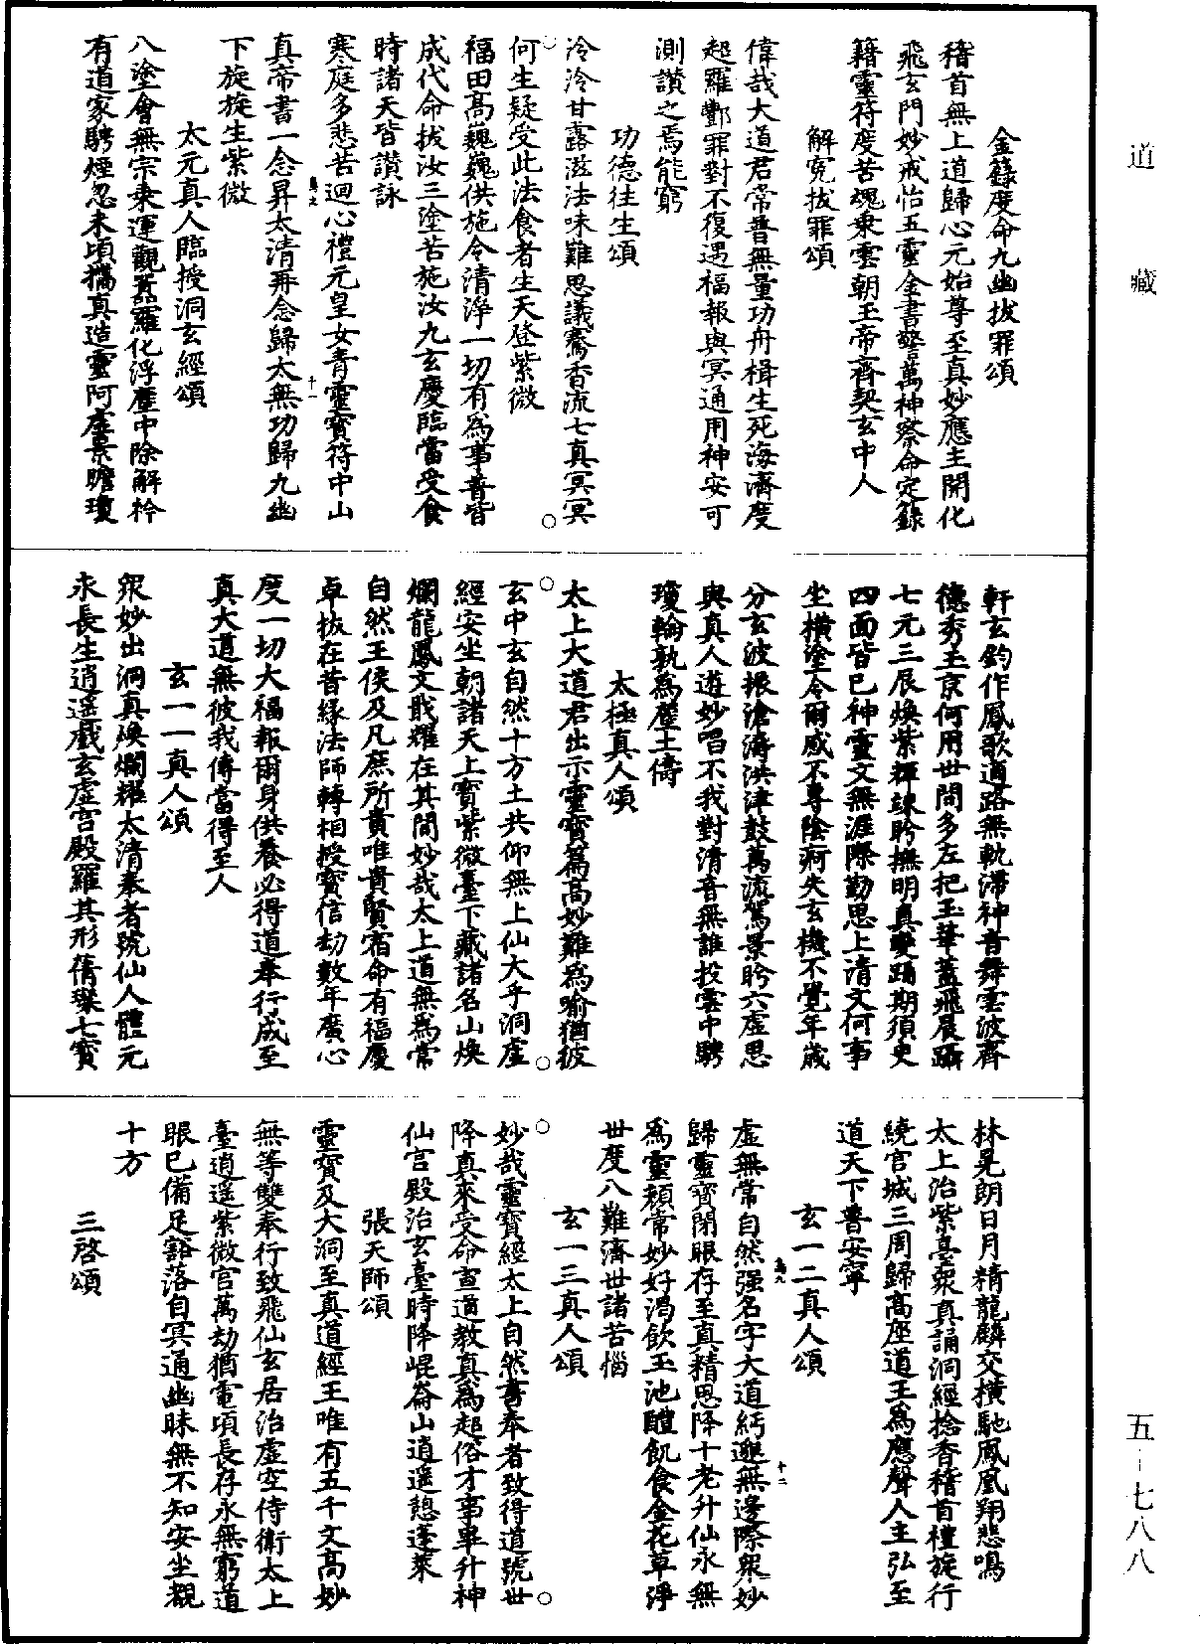 道藏
五—七八八
金籙度命九幽拔罪頌
稽首無上道歸心元始尊至真妙應主開化
飛玄門妙戒怡五靈金書警萬神察命定錄
籍靈符度苦魂乘雲朝玉帝齊契玄中人
解冤拔罪頌
偉哉大道君常普無量功舟楫生死海濟度
超羅酆罪對不復遇福報與冥通用神安可
測讚之焉能窮
功德往生頌
泠泠甘露滋法味難思議騫香流七真冥冥
何生疑受此法食者生天登紫微
福田高巍巍供施令清淨一切有爲事普皆
成代命拔汝三塗苦施汝九玄慶臨當受食
時諸天皆讚詠
寒庭多悲苦迴心禮元皇女青靈寶符中山
真帝書一念昇太清再念歸太無功歸九幽
下旋旋生紫微
太元真人臨授洞玄經頌
八塗會無宗乘運觀囂羅化浮塵中除解衿
有道家騁煙忽未頃攜真造靈阿虛景瞻瓊
軒玄鈞作鳳歌適路無軌滯神音舞雲波齊
德秀玉京何用世間多左把玉華蓋飛晨躡
七元三辰煥紫輝竦眄撫明真變踊期須臾
四面皆已神靈文無涯際勤思上清文何事
坐橫塗令爾感不專陰痾失玄機不覺年歲
分玄波振滄濤洪津鼓萬流駕景眄六虛思
與真人遊妙唱不我對清音無誰投雲中騁
瓊輪孰爲塵土儔
太極真人頌
太上大道君出示靈寶篇高妙難爲喻猶彼
玄中玄自然十方土共仰無上仙大乎洞虛
經安坐朝諸天上寶紫微臺下藏諸名山煥
爛龍鳳文戢耀在其間妙哉太上道無爲常
自然王侯及凡庶所貴唯貴賢宿命有福慶
卓拔在昔緣法師轉相授寶信劫數年廣心
度一切大福報爾身供養必得道奉行成至
真大道無彼我傳當得至人
玄一一真人頌
衆妙出洞真煥爛耀太清奉者號仙人體元
永長生逍遙戲玄虛宮殿羅其形蒨璨七寶
林晃朗日月精龍麟交橫馳鳳凰翔悲鳴
太上治紫臺衆真誦洞經捻香稽首禮旋行
繞宮城三周歸高座道王爲應聲人主弘至
道天下普安寧
玄一二真人頌
虛無常自然强名字大道紆邈無邊際衆妙
歸靈寶閉眼存至真精思降十老升仙永無
爲靈頹常妙好渴飲玉池醴飢食金花草淨
世度八難濟世諸苦惱
玄一三真人頌
妙哉靈寶經太上自然書奉者致得道號世
降真來受命宣道教真爲超俗才事畢升神
仙宮殿治玄臺時降崐崙山逍遥憩蓬萊
張天師頌
靈寶及大洞至真道經王唯有五千文高妙
無等雙奉行致飛仙玄居治虛空侍衛太上
臺逍遥紫微宮萬劫猶電頃長存永無窮道
眼已備足豁落自冥通幽昧無不知安坐觀
十方
三啓頌